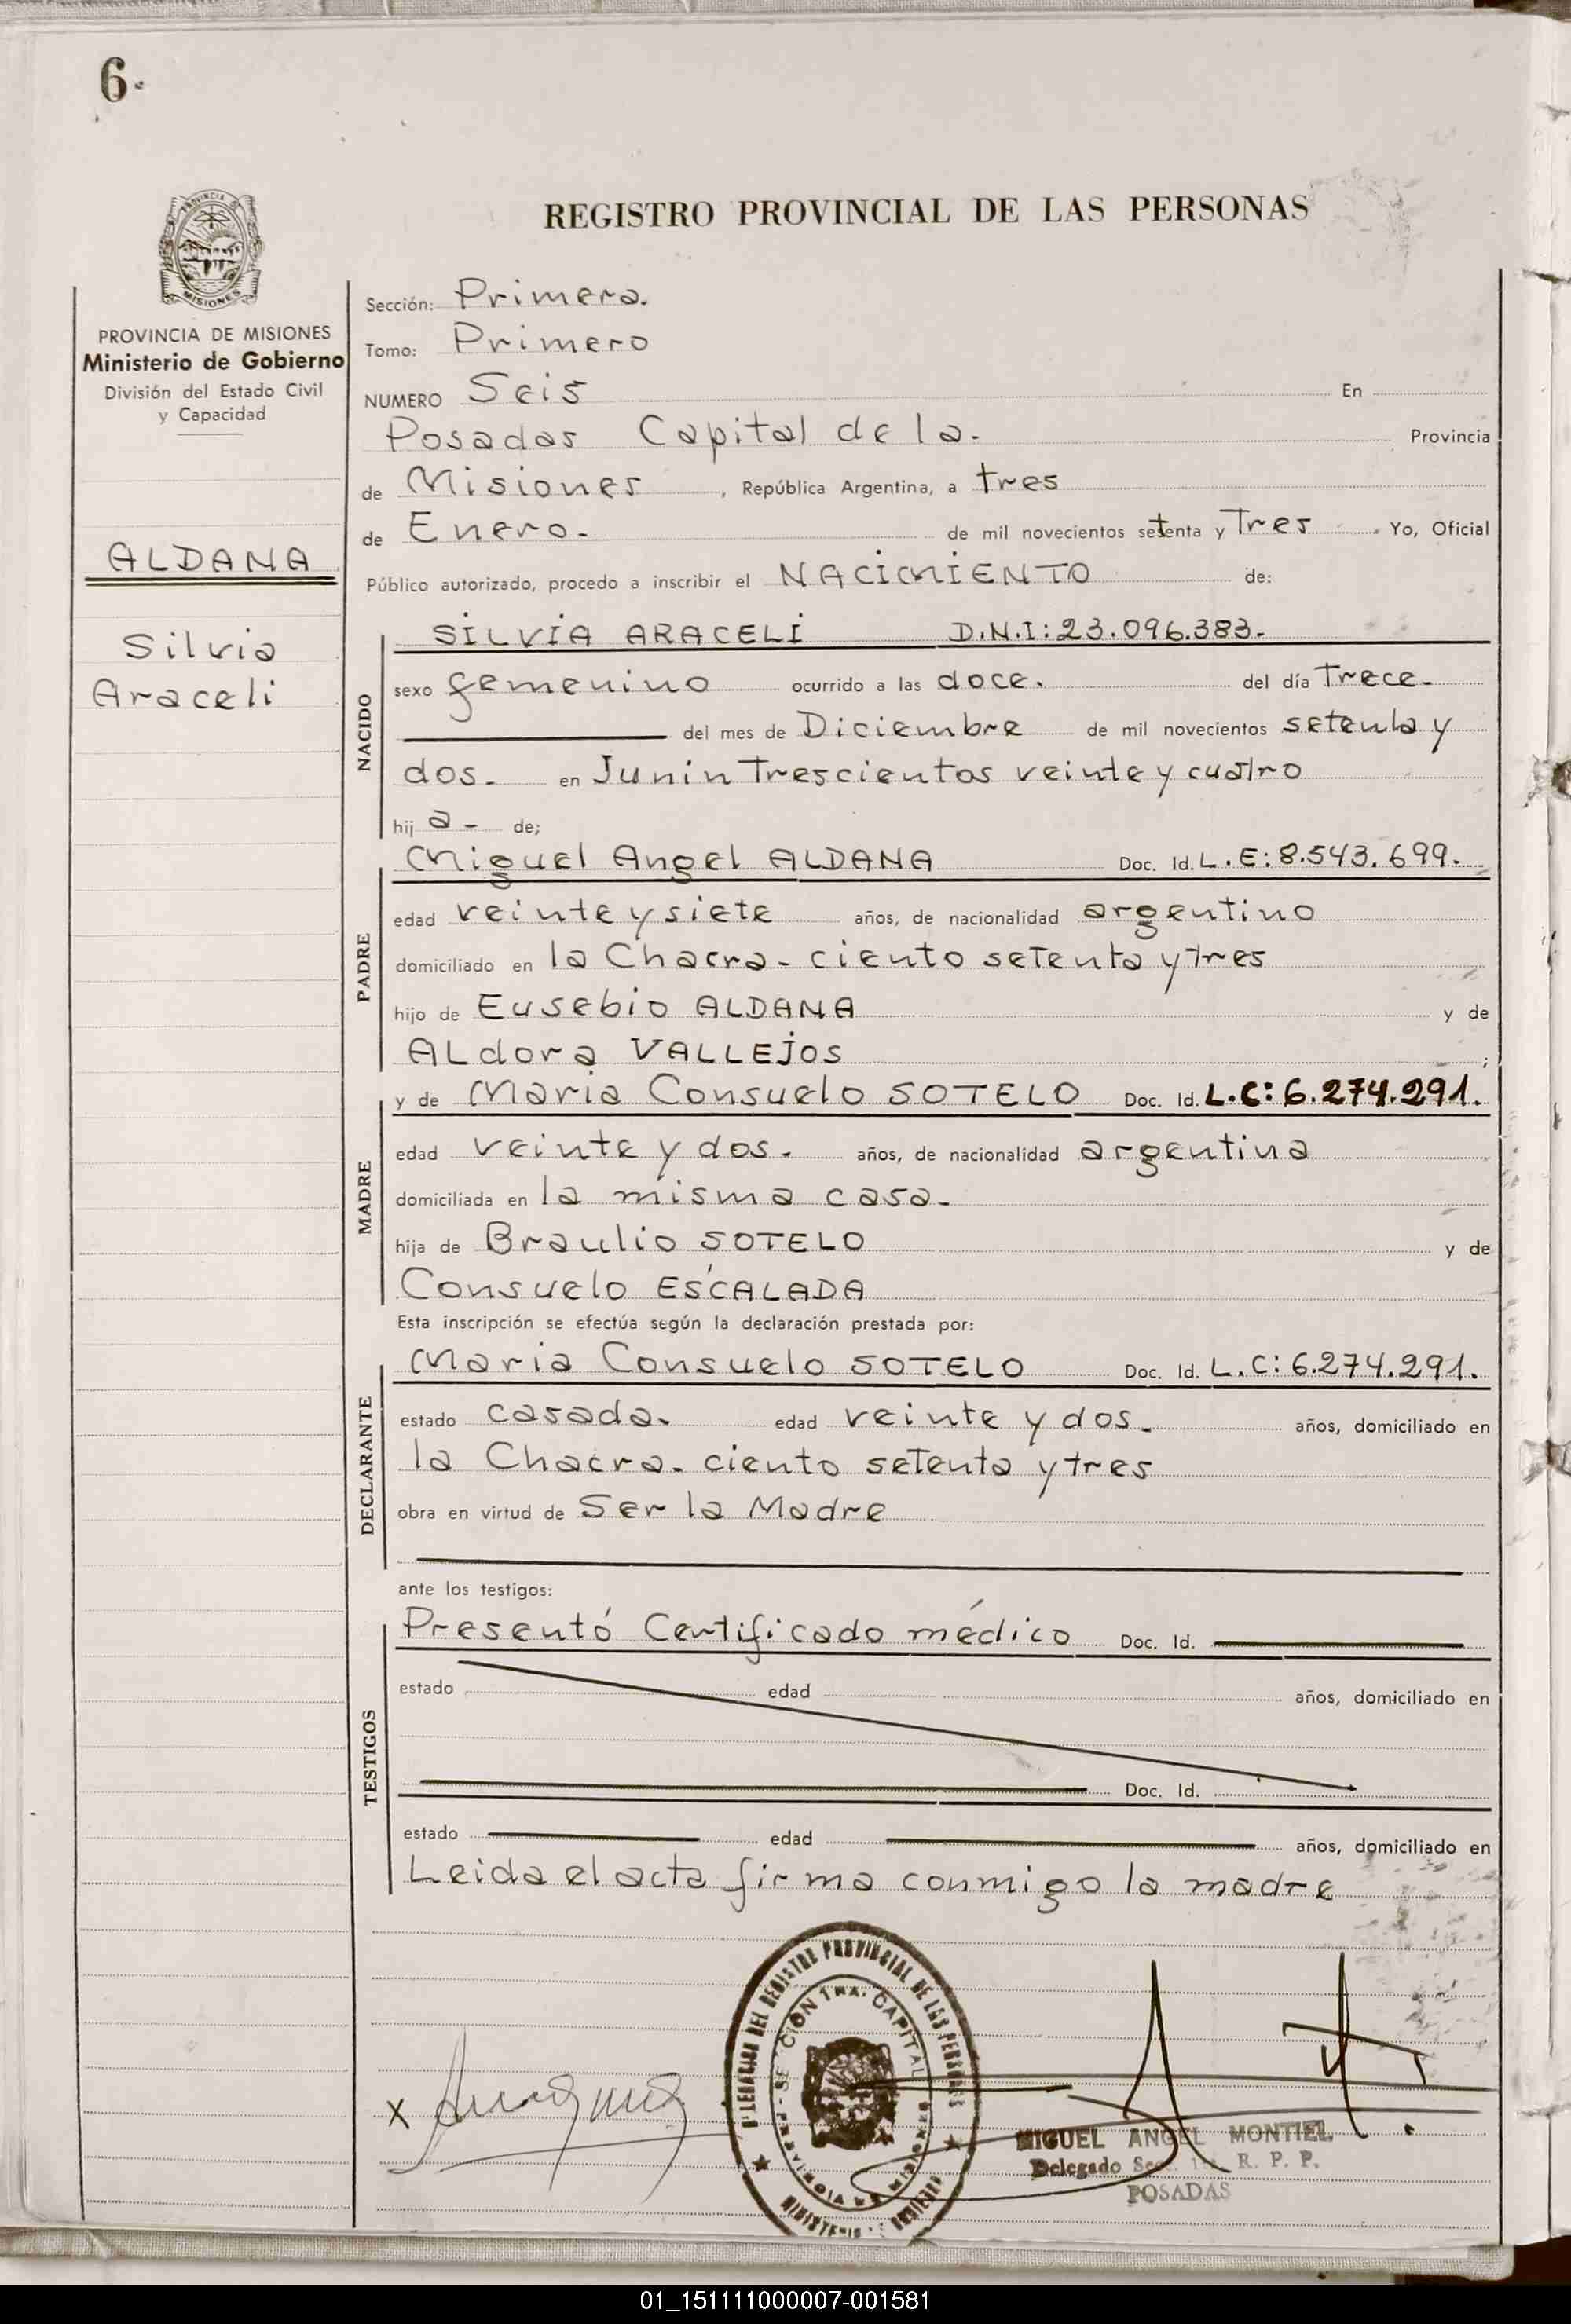 6-
PROVINCIA DE
MISIONES
REGISTRO PROVINCIAL DE LAS PERSONAS
PROVINCIA DE MISIONES
Ministerio de Gobierno
División del Estado Civil
y Capacidad
ALDANA
Silvia
Araceli
Sección: Primera.
Tomo: Primero
NUMERO Seis En
Posadas Capital de la. Provincia
de Misiones, República Argentina, a tres
de Enero. de mil novecientos setenta y Tres. Yo, Oficial
Público autorizado, procedo a inscribir el NACIMIENTO de:
NACIDO
SILVIA ARACELI D.N.I: 23.096.383.
sexo femenino ocurrido a las doce. del día Trece.
del mes de Diciembre de mil novecientos setenta y
dos. en Junin Trescientos veinte y cuatro
hij a - de;
PADRE
Miguel Angel ALDANA Doc. Id. L.E: 8.543.699.
edad veinte y siete años, de nacionalidad argentino
domiciliado en la Chacra - ciento setenta y tres
hijo de Eusebio ALDANA y de
ALdora VALLEJOS ;
MADRE
y de Maria Consuelo SOTELO Doc. Id. L.C: 6.274.291.
edad veinte y dos. años, de nacionalidad argentina
domiciliada en la misma casa.
hija de Braulio SOTELO y de
Consuelo ESCALADA
Esta inscripción se efectúa según la declaración prestada por:
DECLARANTE
Maria Consuelo SOTELO Doc. Id. L.C: 6.274.291.
estado casada. edad veinte y dos. años, domiciliado en
la Chacra. ciento setenta y tres
obra en virtud de Ser la Madre
ante los testigos:
TESTIGOS
Presentó Certificado médico Doc. Id.
estado edad años, domiciliado en
Doc. Id.
estado edad años, domiciliado en
Leida el acta firma conmigo la madre
DELEGACION DEL REGISTRO PROVINCIAL DE LAS PERSONAS
SECCION 1RA. CAPITAL
PROVINCIA DE MISIONES
X
MIGUEL ANGEL MONTIEL
Delegado Secc. 1ra. R. P. P.
POSADAS
01_151111000007-001581